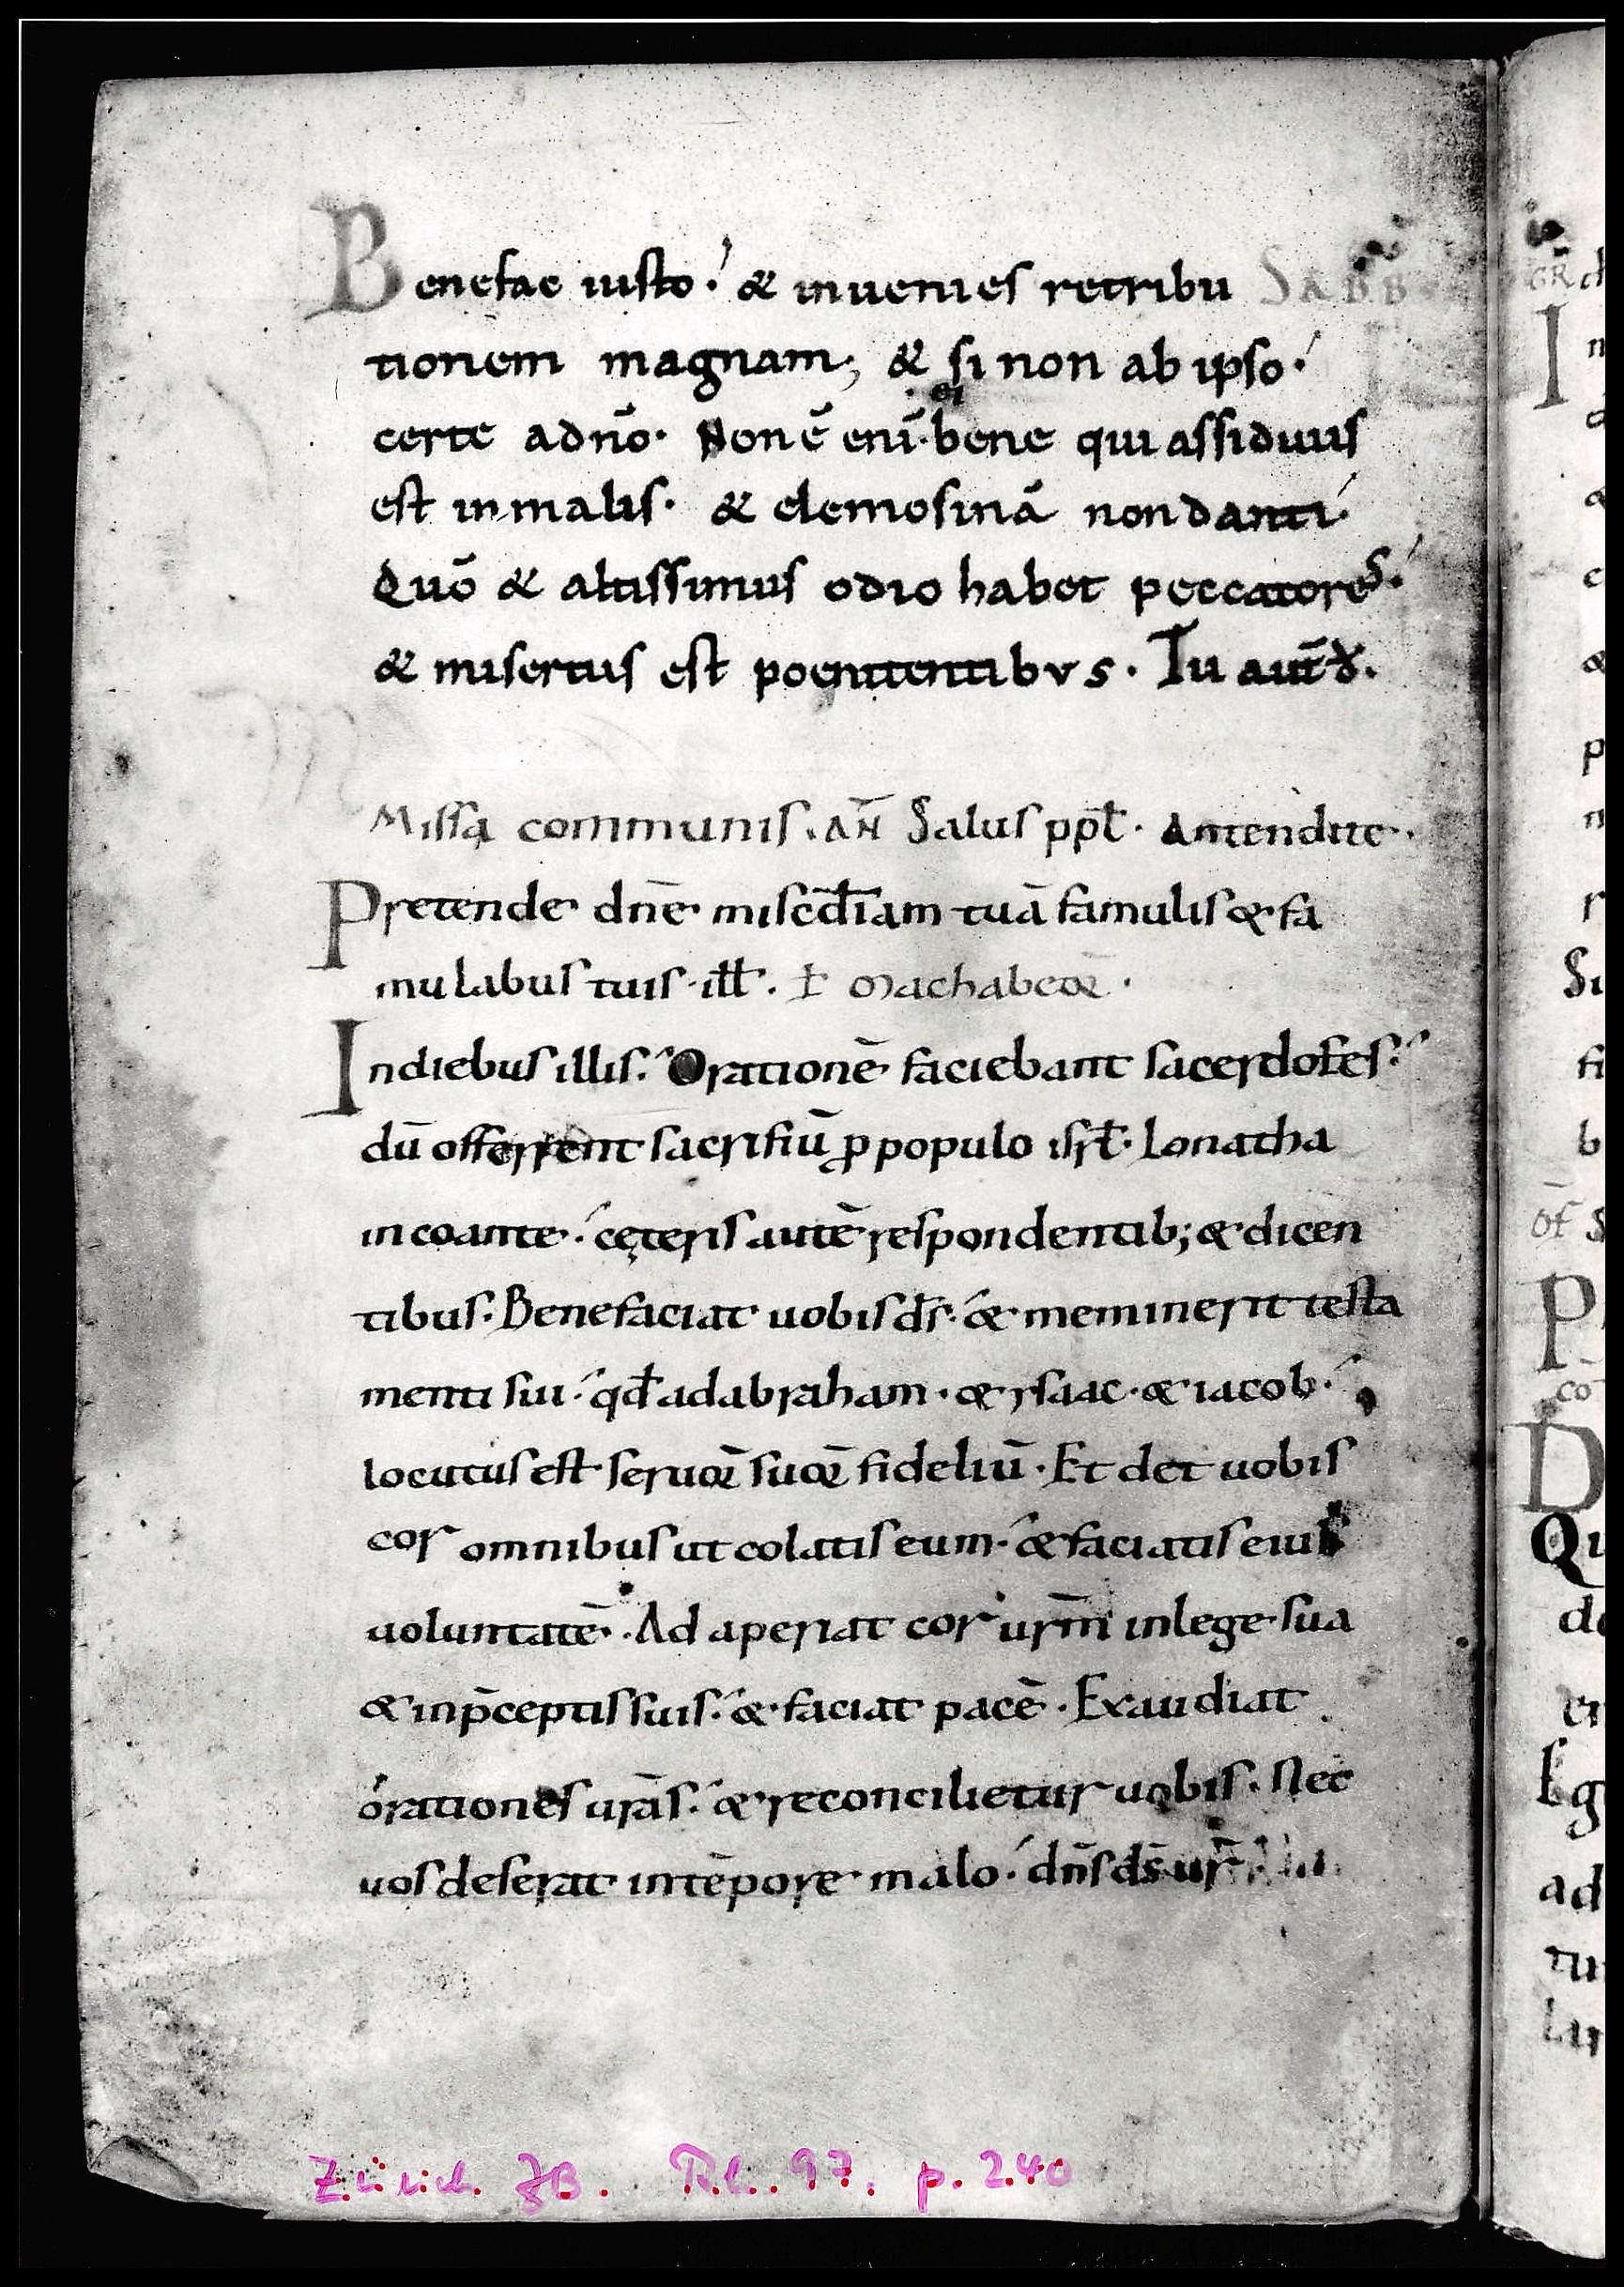 Benefac iusto·̓ & inuenies retribu SABB
tionem magnam; & si non ab ipso·
certe adn̄o· Non ē enī· ei bene qui assiduus
est inmalis· & elemosinā non danti·
Quō & altissimus odio habet peccatores·
& misertus est poenitentibus· Tu aut̄
Missa communis· AÑ Salus pp̄l· Attendite·
Pretende dn̄e misc̄diam tuā famulis & fa
mulabus tuis· ill̄· Machabeoꝝ·
In diebus illis· Orationē faciebant sacerdotes·
dū offerrent sacrifiū ꝓ populo isrl̄· Ionatha
incoante· cęteris autē respondentib; & dicen
tibus· Benefaciat uobis d̄s· & meminerit testa
menti sui· qd̄ ad abraham· & ysaac· & iacob·
locutus est seruoꝝ suoꝝ fideliū· Et det uobis
cor omnibus ut colatis eum· & faciatis eius
uoluntatē· Ad aperiat cor ur̄m in lege sua
& in p̄ceptis suis· & faciat pacē· Exaudiat
orationes ur̄as· & reconcilietur uobis· Nec
uos deserat in tēpore malo· dn̄s d̄s ur̄
Zürich. ZB. Rh. 97. p. 240